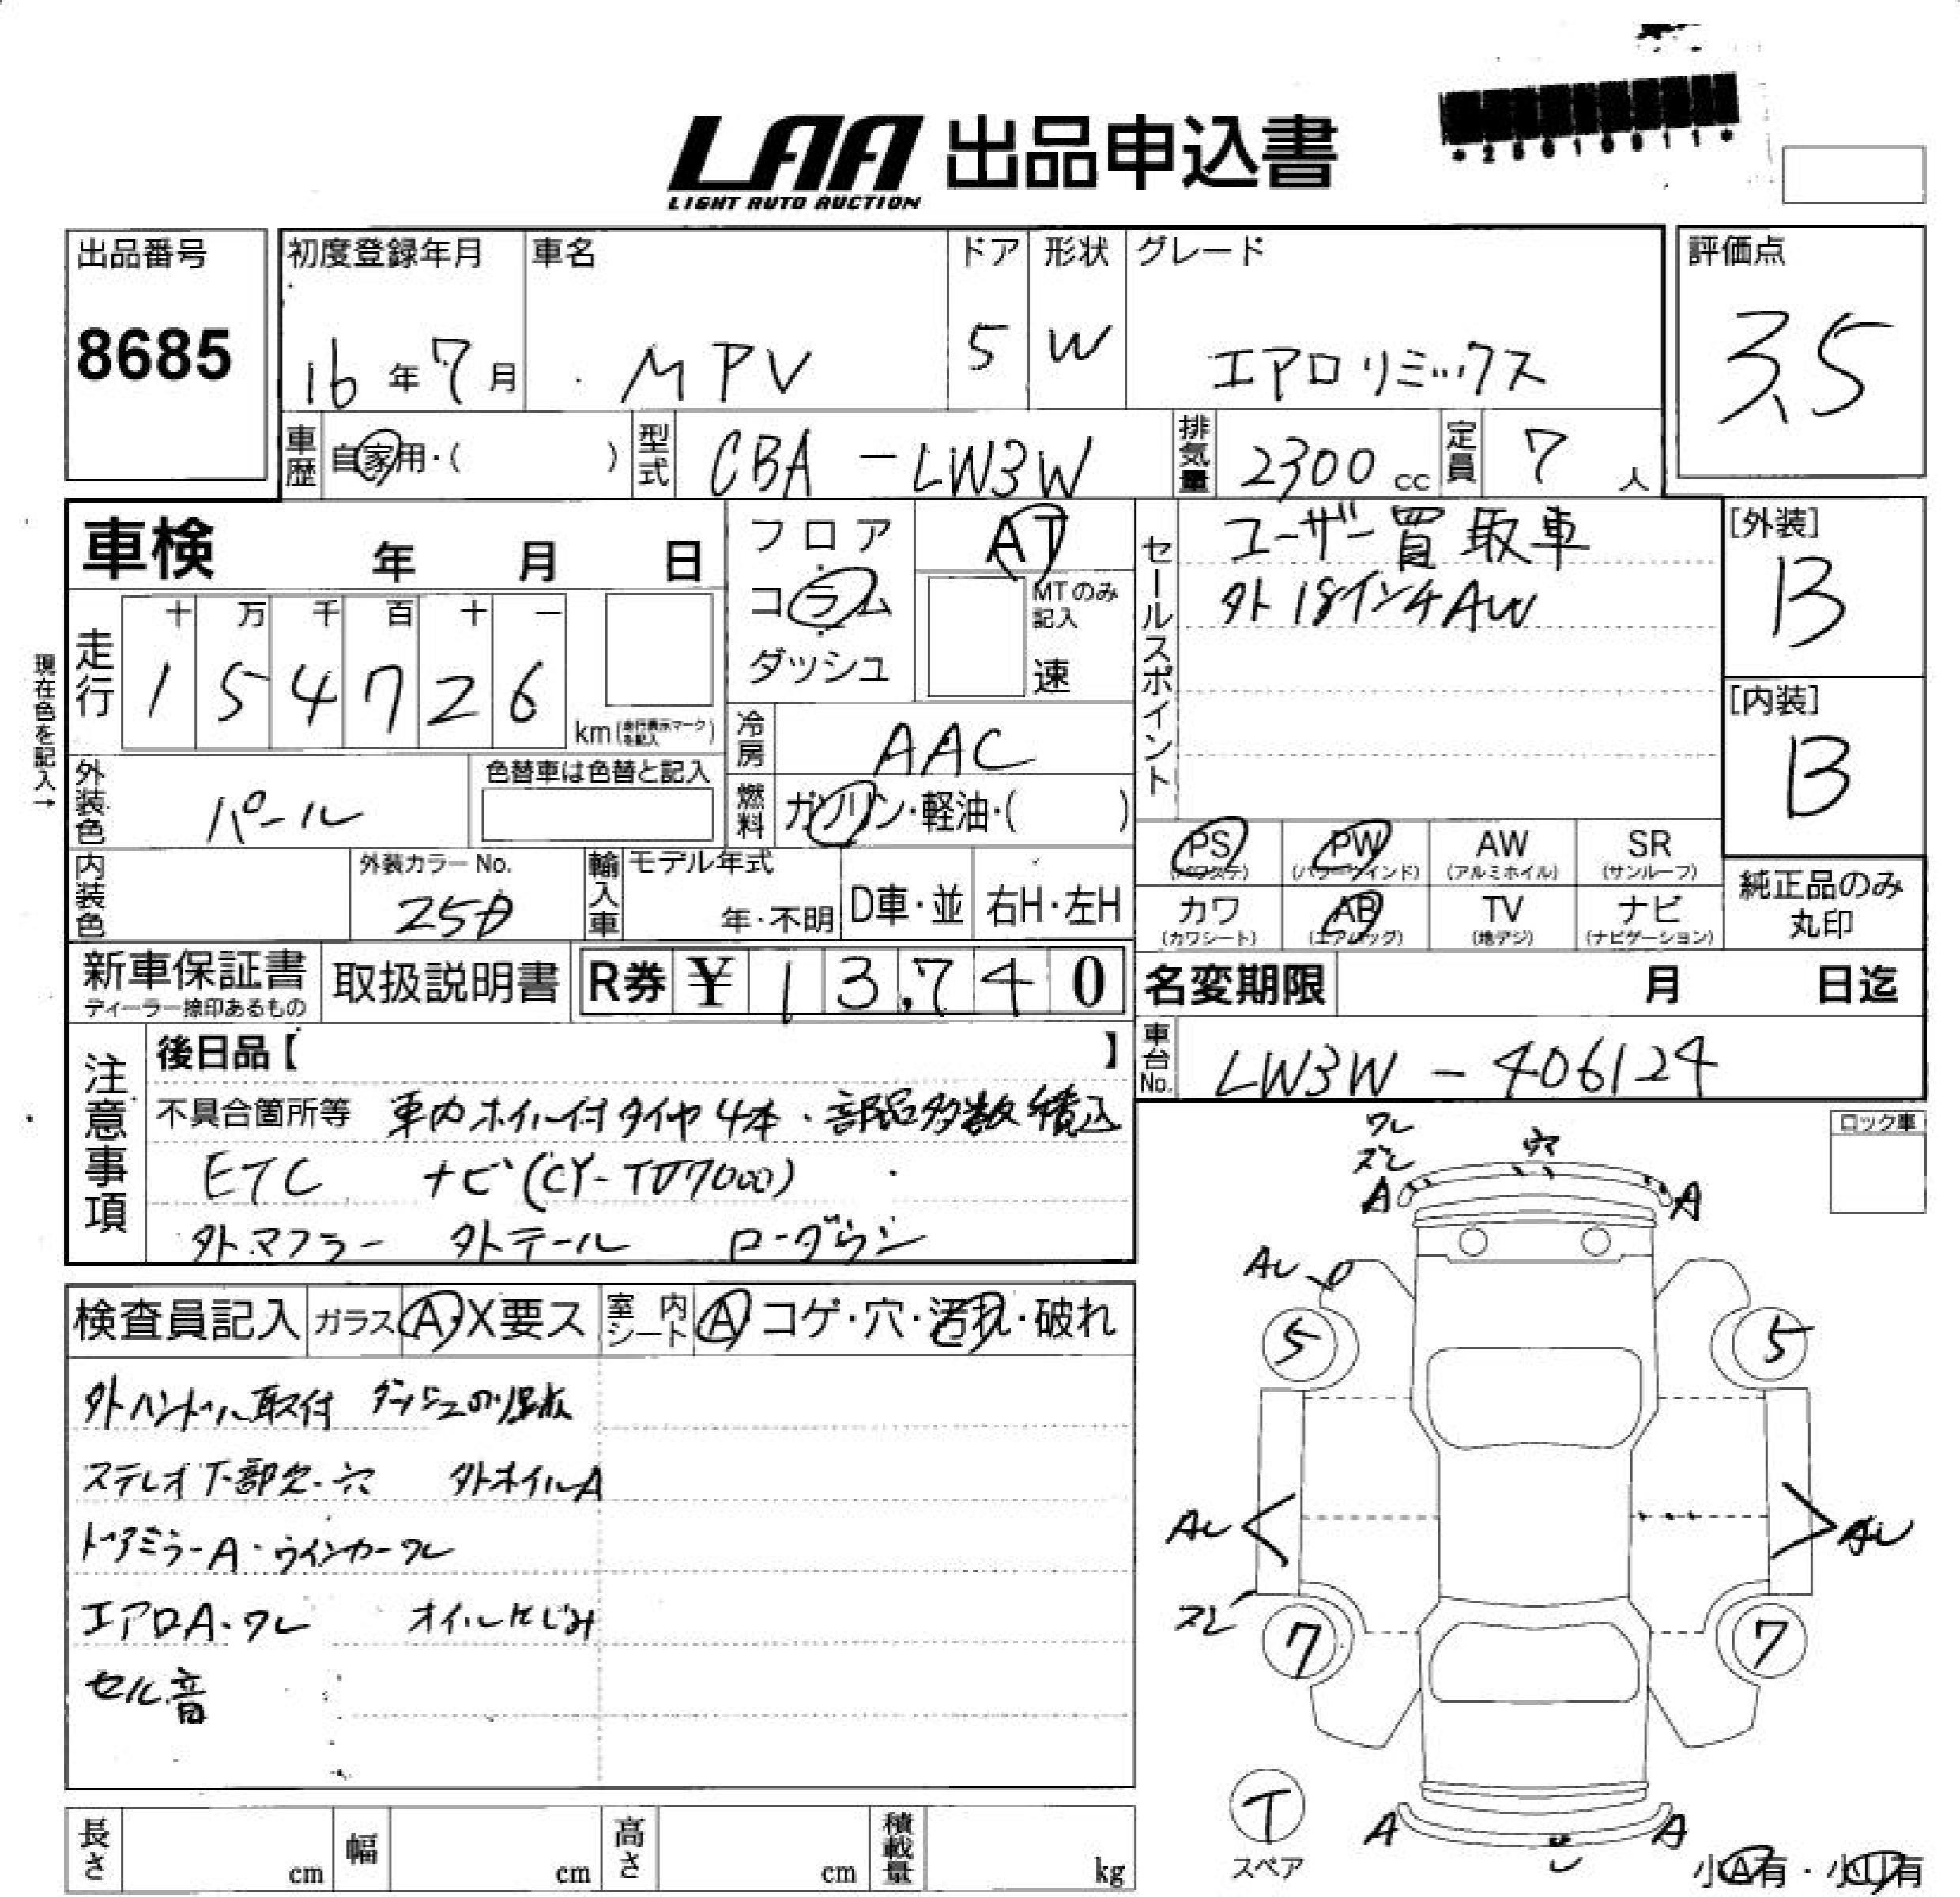 *25610911*
LAA 出品申込書
LIGHT AUTO AUCTION
出品番号
8685
初度登録年月
16年7月
車名
MPV
ドア
5
形状
W
グレード
エアロリミックス
評価点
3.5
車歴
自家用・( )
型式
CBA-LW3W
排気量
2300cc
定員
7人
車検 年 月 日
フロア
コラム
ダッシュ
AT
MTのみ
記入
速
セールスポイント
ユーザー買取車
外18インチAW
[外装]
B
[内装]
B
現在色を記入→
走行
十 万 千 百 十 一
1 5 4 7 2 6
km(走行表示マークを記入)
冷房
AAC
外装色
パール
色替車は色替と記入
燃料
ガソリン・軽油・( )
内装色
外装カラーNo.
25D
輸入車
モデル年式
年・不明
D車・並
右H・左H
PS
(パワステ)
PW
(パワーウインド)
AW
(アルミホイル)
SR
(サンルーフ)
カワ
(カワシート)
AB
(エアバッグ)
TV
(地デジ)
ナビ
(ナビゲーション)
純正品のみ
丸印
新車保証書
ディーラー捺印あるもの
取扱説明書
R券 ¥ 13,740
名変期限 月 日迄
車台No.
LW3W-406124
注意事項
後日品【 】
不具合箇所等 車内ホイル付タイヤ4本・部品多数積込
ETC ナビ(CY-TV7000)
外マフラー 外テール ローダウン
ロック車
検査員記入
ガラス
A・X要ス
室内シート
A コゲ・穴・汚れ・破れ
外ハンドル取付
ステレオ下部欠・穴 外ホイルA
ドアミラーA・ウインカーワレ
エアロA・ワレ オイルにじみ
セル音
ワレ
ズレ
穴
A
A
AU
5
5
AU
AU
ズレ
7
7
T
スペア
A
A
U
小A有・小U有
長さ cm
幅 cm
高さ cm
積載量 kg